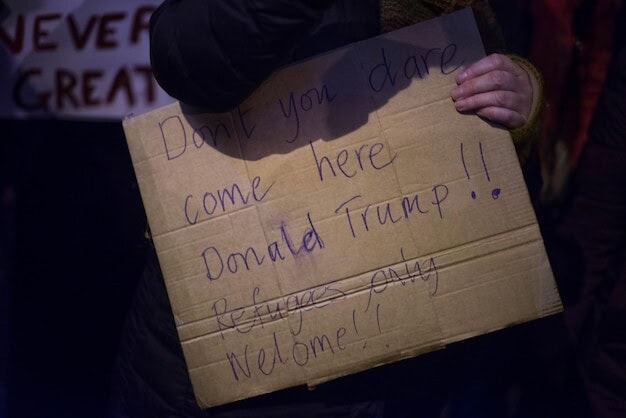 NEVER
GREAT
Don't you dare
come here
Donald Trump!!
Refugees only
Welcome!!